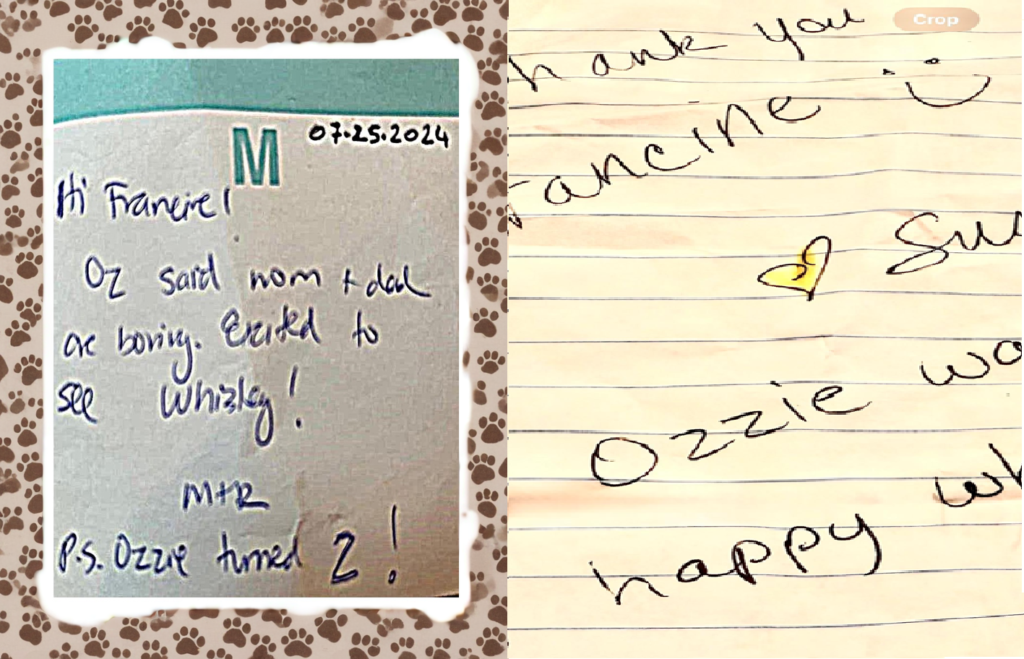 M
07.25.2024
Hi Francine!
Oz said mom + dad
are boring. Excited to
see Whizley!
M+R
P.S. Ozzie turned 2!
Crop
hank you
rancine
Su
Ozzie wa
happy wh